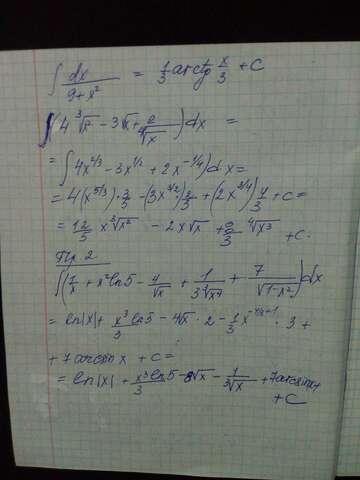 ∫ dx/(9+x²) = 1/3 arctg x/3 + C
∫(4∛x² − 3√x + 2/∜x)dx =
= ∫(4x^(2/3) − 3x^(1/2) + 2x^(−1/4))dx =
= 4(x^(5/3))·3/5 − (3x^(3/2))2/3 + (2x^(3/4))4/3 + C =
= 12/5 x∛x² − 2x√x + 8/3 ∜x³ + C.
Пр. 2.
∫(1/x + x²ln5 − 4/√x + 1/(3∛x⁴) + 7/√(1−x²))dx
= ln|x| + x³/3 ln5 − 4√x · 2 − 1/3 x^(−4/3+1) · 3 +
+ 7arcsinx + C =
= ln|x| + x³ln5/3 − 8√x − 1/∛x + 7arcsinx +
+ C